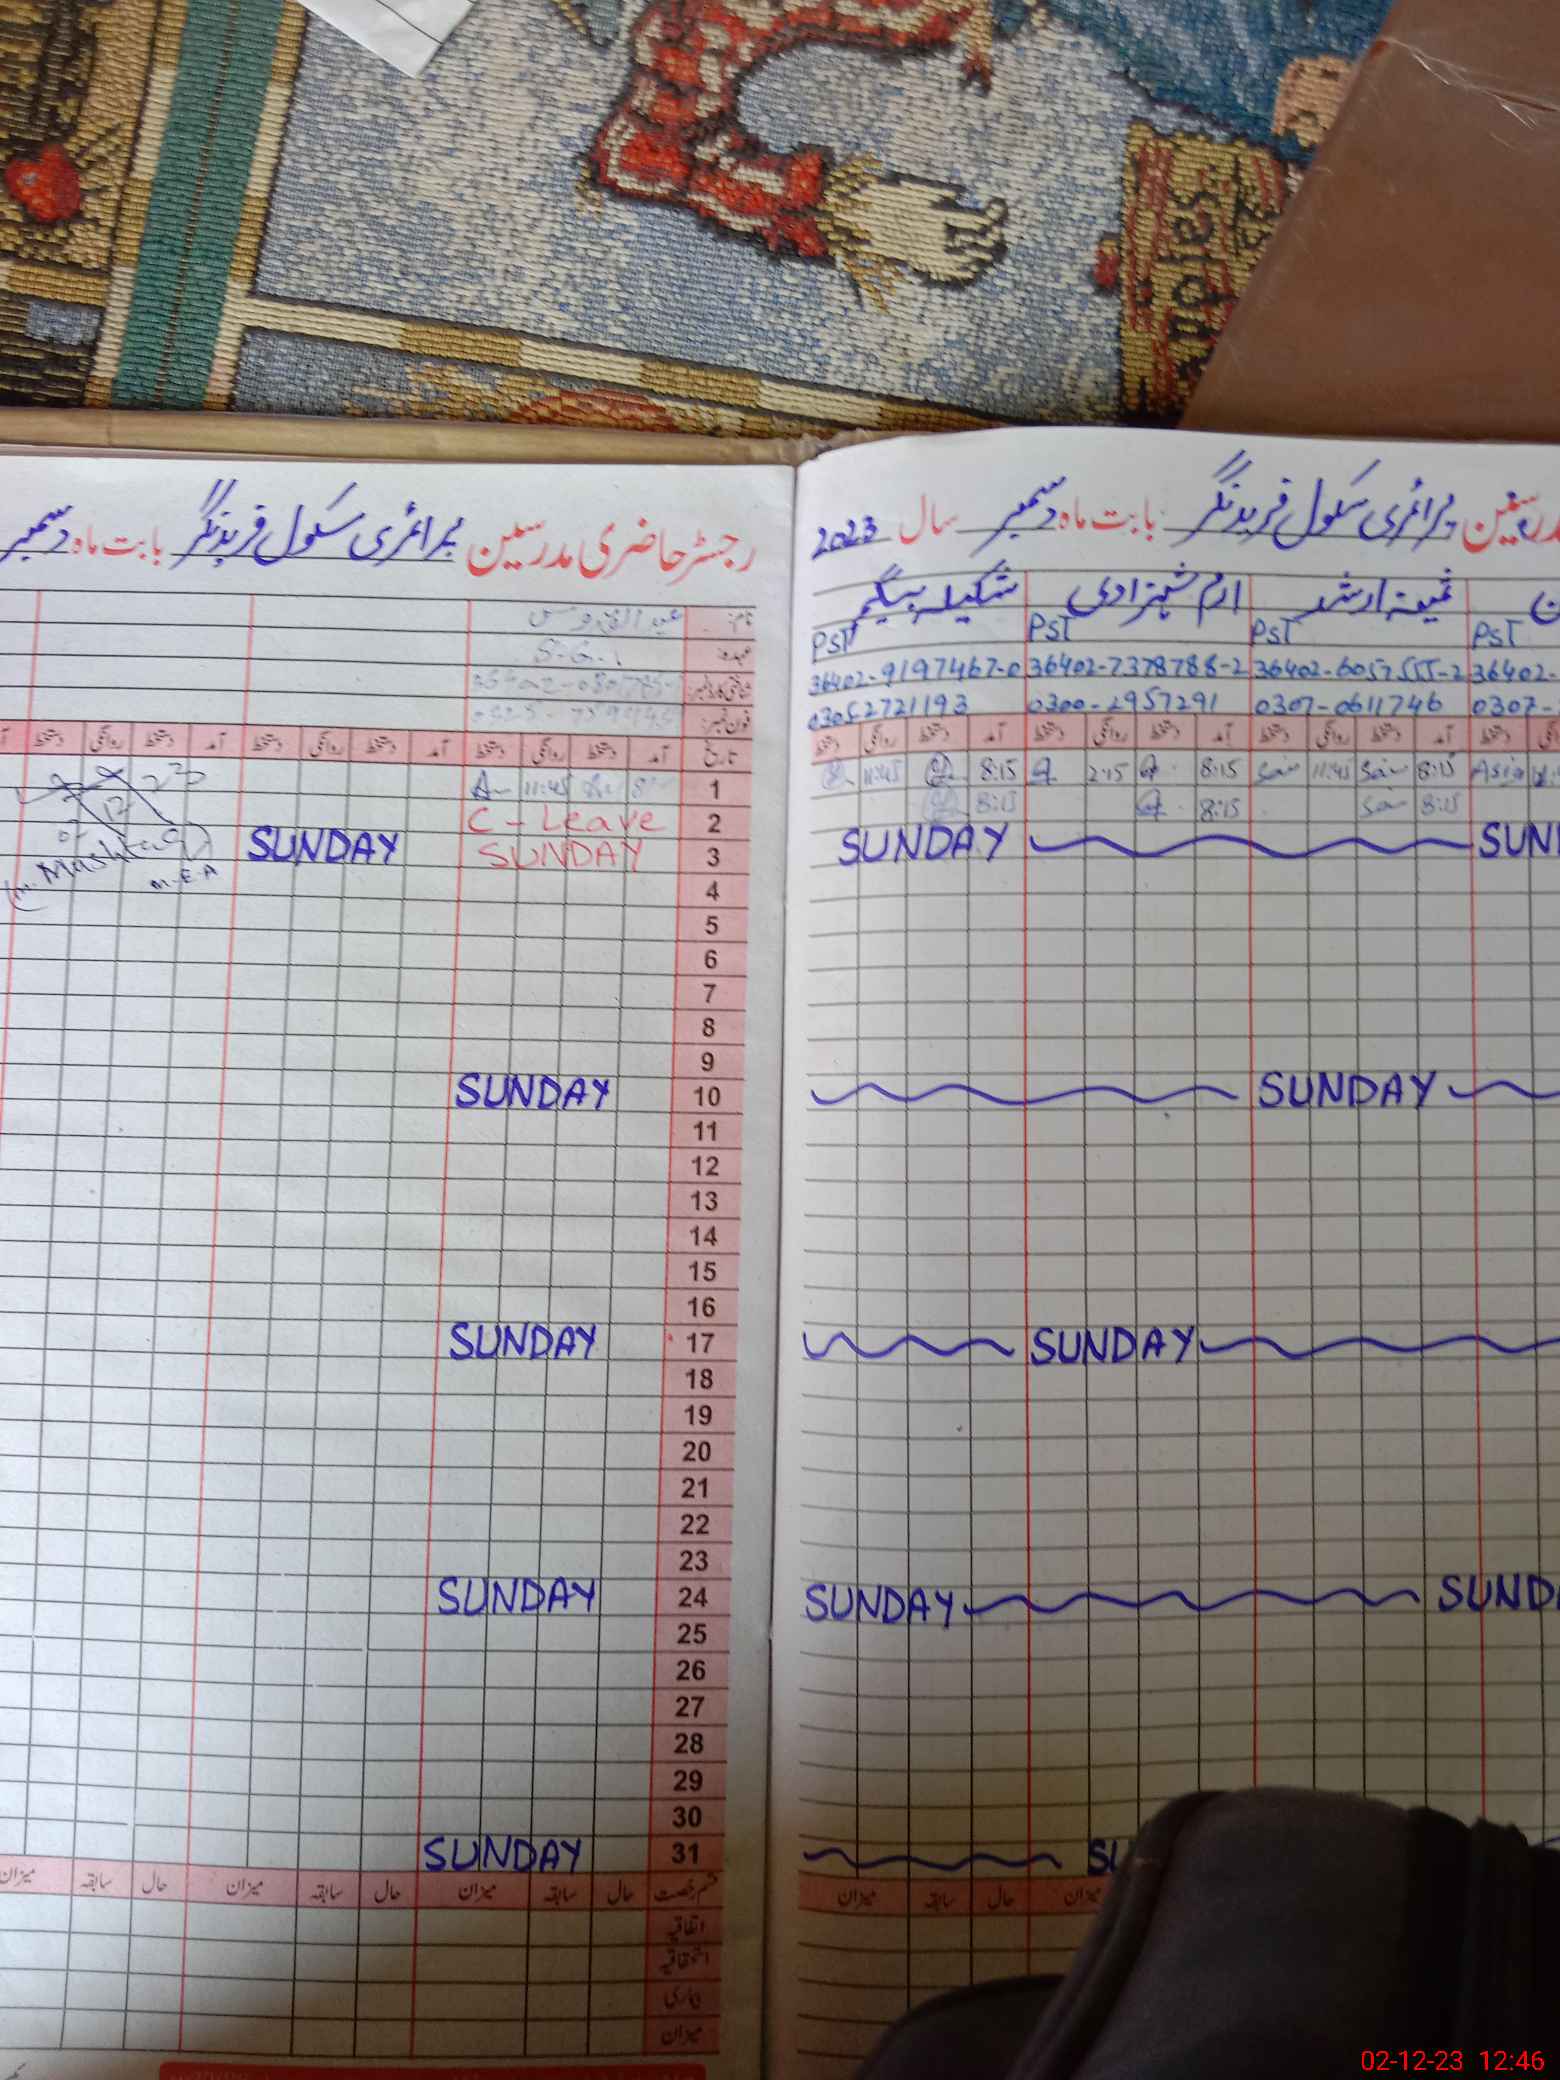 Sajdu
رجسٹر حاضری مدرسین پرائمری سکول فرید نگر بابت ماہ دسمبر
پرائمری سکول فرید نگر بابت ماہ دسمبر سال 2023
نام:
عہدہ: S.G.
شناختی کارڈ نمبر:
فون نمبر:
ارم شہزادی شکیلہ بیگم
PST PST PST PST
36402-9197467-0 36402-7378788-2 36402-6057555-2 36402-
03052721193 0300-2957291 0307-0611746 0307-
تاریخ آمد دستخط روانگی دستخط آمد دستخط روانگی دستخط آمد دستخط روانگی دستخط
دستخط روانگی دستخط آمد دستخط روانگی دستخط آمد دستخط روانگی دستخط آمد دستخط
1 11:45
11:45 8:15 2:15 8:15 11:45 8:15 Asia
2 C-Leave
8:15 8:15 8:15
3 SUNDAY SUNDAY
SUNDAY SUN
M. Mushtaq
M.E.A
4
5
6
7
8
9
10 SUNDAY
SUNDAY
11
12
13
14
15
16
17 SUNDAY
SUNDAY
18
19
20
21
22
23
24 SUNDAY
SUNDAY SUND
25
26
27
28
29
30
31 SUNDAY
SU
قسم رخصت حال سابقہ میزان حال سابقہ میزان حال سابقہ میزان
میزان سابقہ حال میزان
اتفاقیہ
استحقاقیہ
بیماری
میزان
02-12-23 12:46